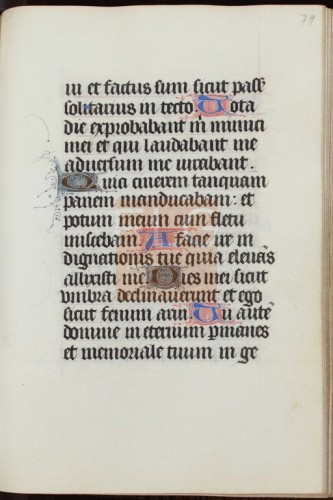 79
ui et factus sum sicut pass
solitarius in tecto. Tota
die exprobabant m inimici
mei et qui laudabant me
adversum me iurabant.
Quia cinerem tanquam
panem manducabam: et
potum meum cum fletu
miscebam. A facie ire in
dignationis tue quia elevās
allisisti me. Dies mei sicut
umbra declinaverunt et ego
sicut fenum arui. Tu autē
domine in eternum pmanes
et memoriale tuum in ge